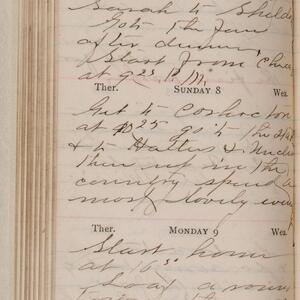 Sarah to Sheld
Got the
after dinner
Start from Chic
at 9 25 P.M.
Ther. SUNDAY 8 Wea.
Get to Coshocton
at 25 go to the
& to Walters &
Then up in the
country spend a
most lovely eve
Ther. MONDAY 9 Wea.
Start home
at 10 30
Load a